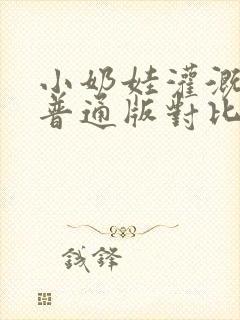 小奶娃灌溉
普通版對比
錢鋒